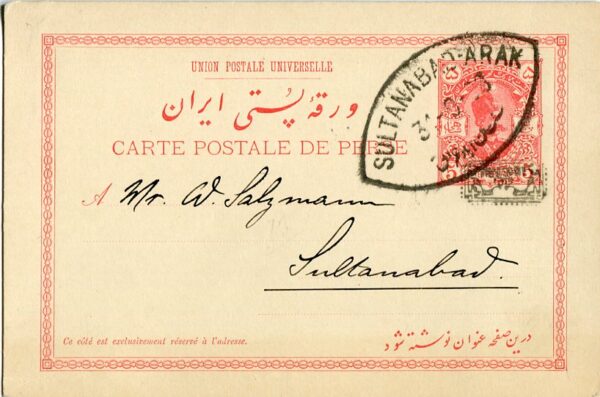 UNION POSTALE UNIVERSELLE
ورقه پستی ایران
CARTE POSTALE DE PERSE
SULTANABAD-ARAK
5
5
A Mr. W. Salzmann
Sultanabad.
Ce côté est exclusivement réservé à l'adresse.
درین صفحه عنوان نوشته شود